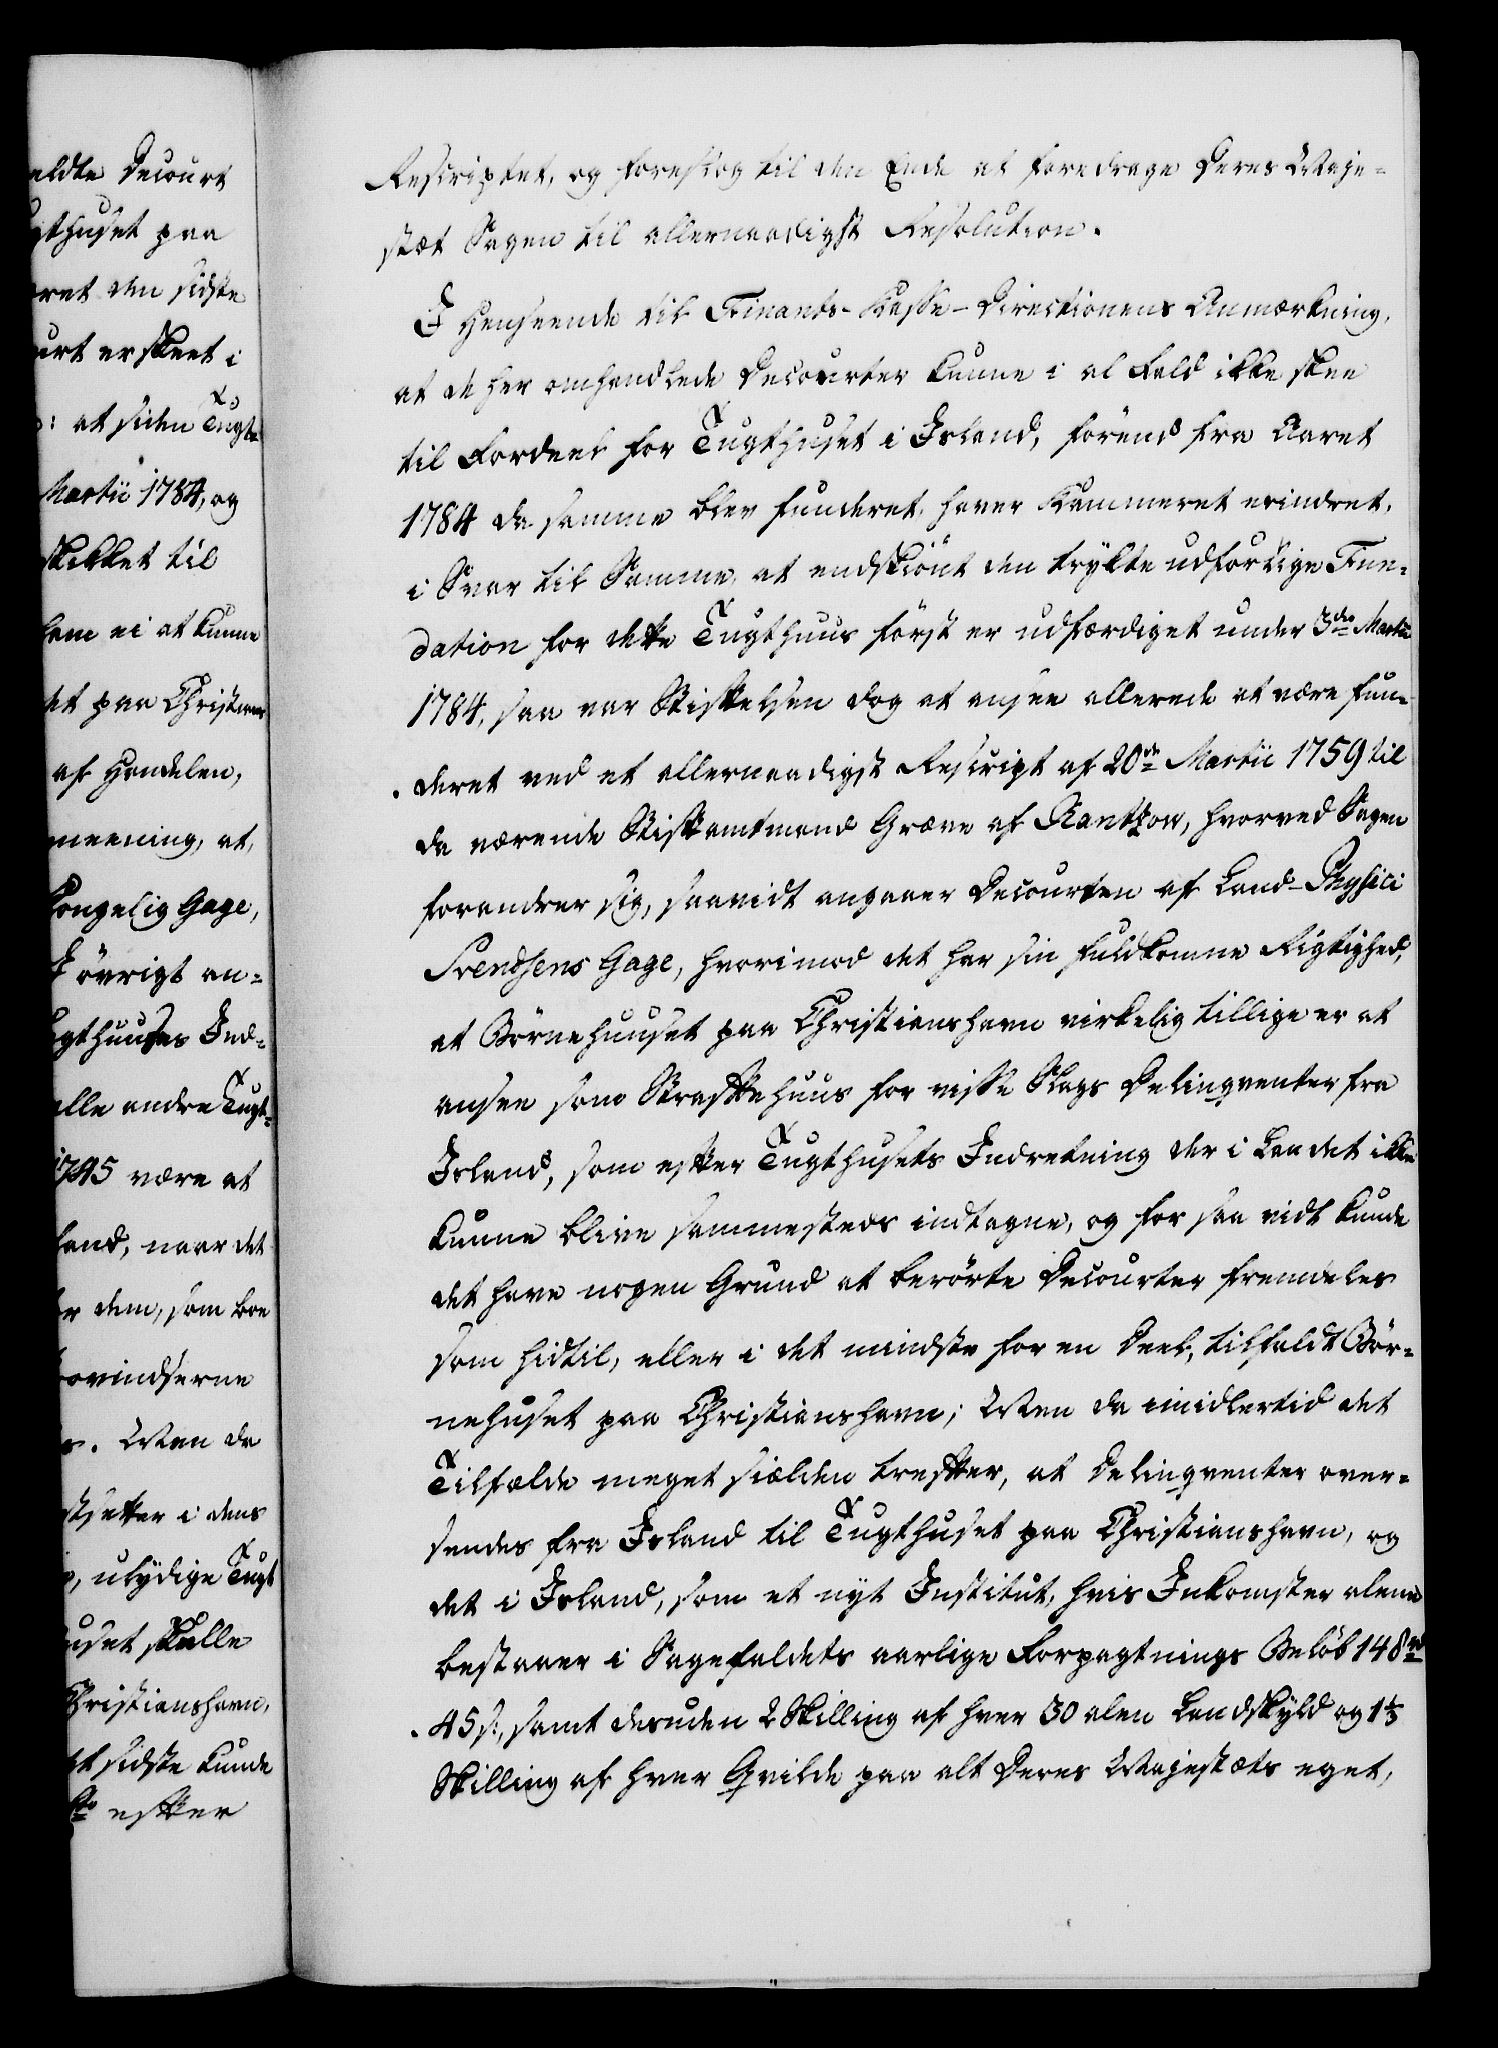 eldte Decourt
gthuset paa
aret den sidste
urt er skeet i
: at siden Tugt-
Martii 1784, og
skikket til
ham ei at kunne
et paa Christians-
af Handelen,
meening, at,
Kongelig Gage,
I övrigt an-
ugthuuses Ind-
alle andre Tugt-
1745 være at
land, naar det
er dem, som boe
Provindserne
s. Men da
stsætter i dens
, ulydige Tugt
uset skulle
Christianshavn,
et sidste kunde
efter
Rescriptet, og foreslog til den Ende at foredrage Deres Maje-
stæt Sagen til allernaadigst Resolution.
I Henseende til Finants-Kasse-Directionens Anmærkning,
at de her omhandlede Decourter kunne i al Fald ikke skee
til Fordeel for Tugthuset i Island, förend fra Aaret
1784 da samme blev funderet, haver Kammeret erindret,
i Svar til Samme, at endskiönt den trykte udförlige Fun-
dation for dette Tugthuus först er udfærdiget under 3die Martii
1784, saa var Stiftelsen dog at ansee allerede at være fun-
deret ved et allernaadigst Rescript af 20de Martii 1759 til
da værende Stiftamtmand Greve af Rantzow, hvorved Sagen
forandrer sig, saavidt angaaer Decourten af Land-Physici
Svendsens Gage, hvorimod det har sin fuldkomne Rigtighed,
at Börnehuuset paa Christianshavn virkelig tillige er at
ansee som Straffehuus for visse Slags Delinqventer fra
Island, som efter Tugthusets Indretning der i Landet ikke
kunne blive sammesteds indtagne, og for saa vidt kunde
det have nogen Grund at berörte Decourter fremdeles
som hidtil, eller i det mindste for en Deel, tilfaldt Bör-
nehuset paa Christianshavn; Men da imidlertid det
Tilfælde meget siælden treffer, at Delinqventer over-
sendes fra Island til Tugthuset paa Christianshavn, og
det i Island, som et nyt Institut, hvis Inkomster alene
bestaaer i Sagefaldets aarlige Forpagtnings Belöb 148 rd
45 s:, samt desuden 2 Skilling af hver 30 alen Landskyld og 1 1/3
Skilling af hver Qvilde paa alt Deres Majestæts eget,